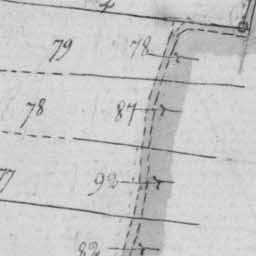 79 78
78 87
77 92
82